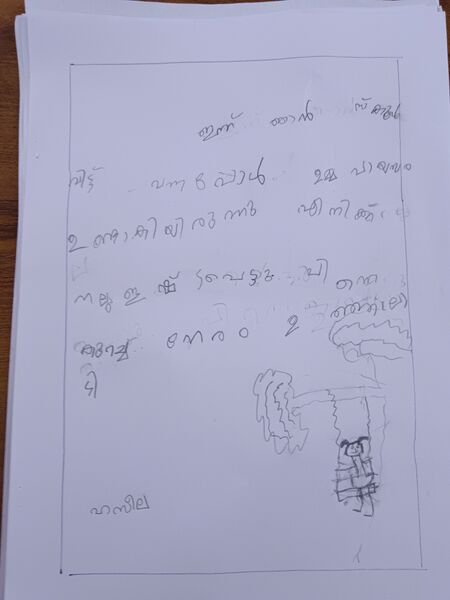 ഇന്ന് ഞാൻ സ്കൂൾ
വിട്ട് വന്നപ്പോൾ ഉമ്മ പായസം
ഉണ്ടാക്കിയിരുന്നു എനിക്ക്
നല്ല ഇഷ്ട്ടപ്പെട്ടു പിന്നെ
കുറച്ച് നേരം ഊഞ്ഞാലാ
ടി
ഹസീല